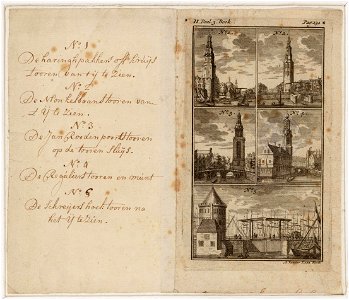 No 1
De haringhpakkers off kruys
tooren van t'ij te Zien.
No 2
De Montelbaanstooren van
't Y te zien.
No 3
De Jan Roedenpoortstooren
op de tooren sluijs.
No 4
De Regulierstooren en munt
No 6
De Schreijershoektooren na
het Y te zien.
II. Deel 3 Boek.
No 1.
No 2.